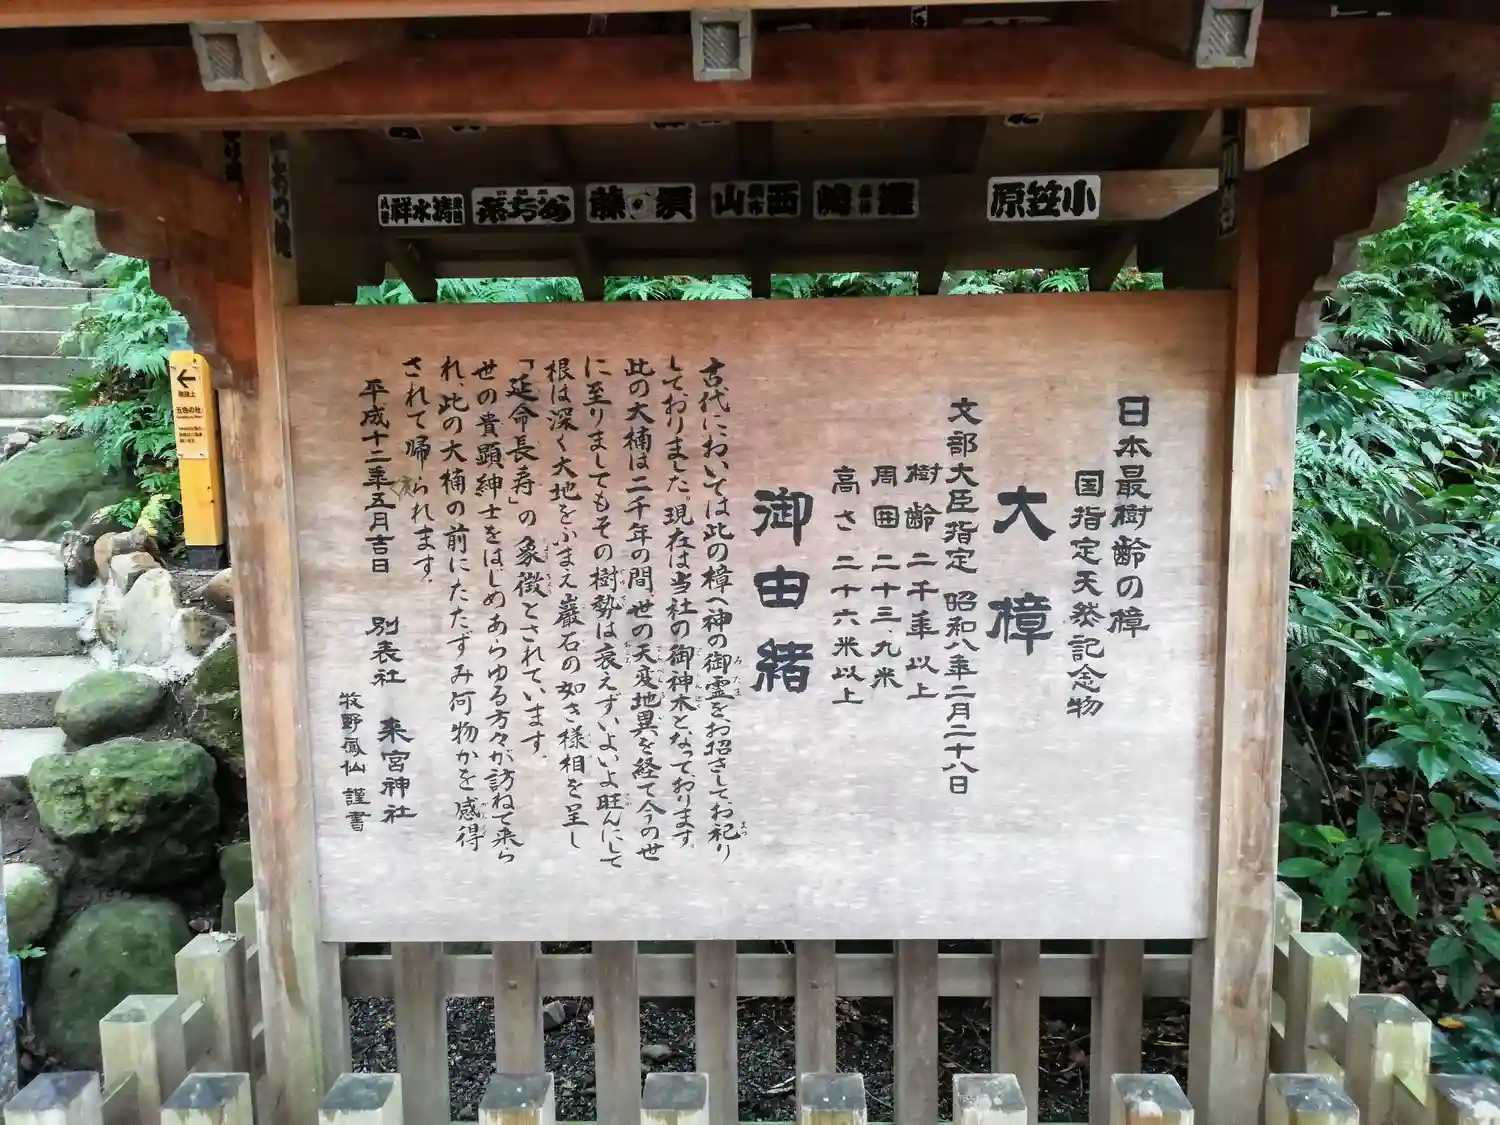 日本最樹齢の樟
国指定天然記念物
大樟
文部大臣指定 昭和八年二月二十八日
樹齢 二千年以上
周囲 二十三、九米
高さ 二十六米以上
御由緒
古代においては此の樟へ神の御霊をお招きしてお祀り
しておりました。現在は当社の御神木となっております。
此の大楠は二千年の間 世の天変地異を経て今の世
に至りましてもその樹勢は衰えずいよいよ旺んにして
根は深く大地をふまえ巌石の如き様相を呈し
「延命長寿」の象徴とされています。
世の貴顕紳士をはじめあらゆる方々が訪ねて来ら
れ、此の大楠の前にたたずみ何物かを感得
されて帰られます。
平成十二年五月吉日
別表社 来宮神社
牧野鳳仙 謹書
小笠原
西山
須藤
清水祥
五色の杜